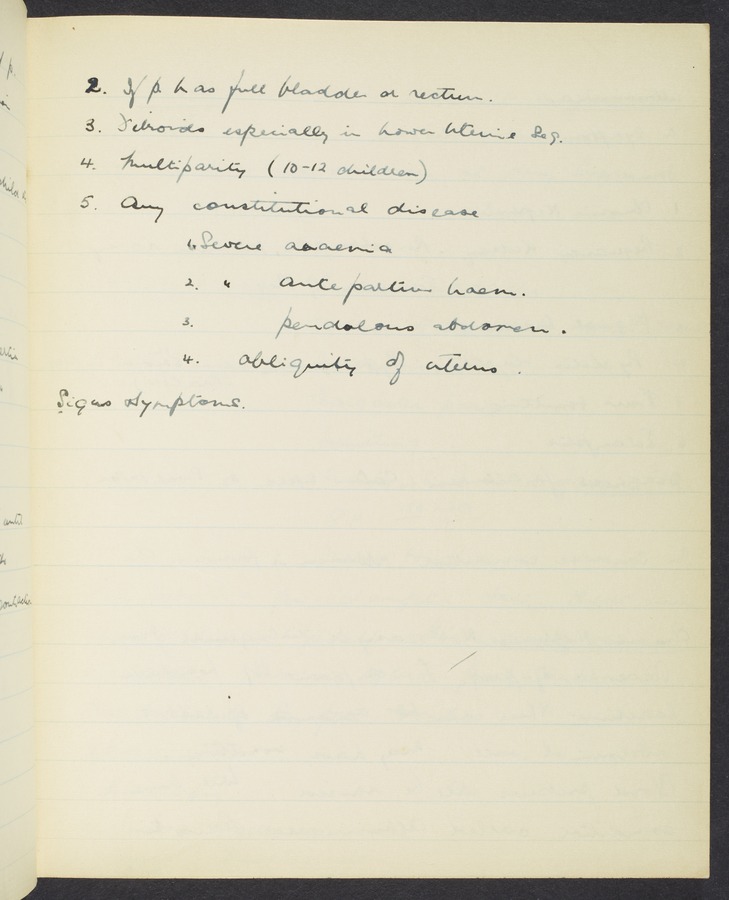 2. If p. has full bladder or rectum.
3. Fibroids especially in lower uterine Seg.
4. Multiparity (10-12 children)
5. Any constitutional disease
1. Severe anaemia
2. " antepartum haem.
3. pendolous abdomen.
4. obliquity of uterus.
Signs Symptoms.